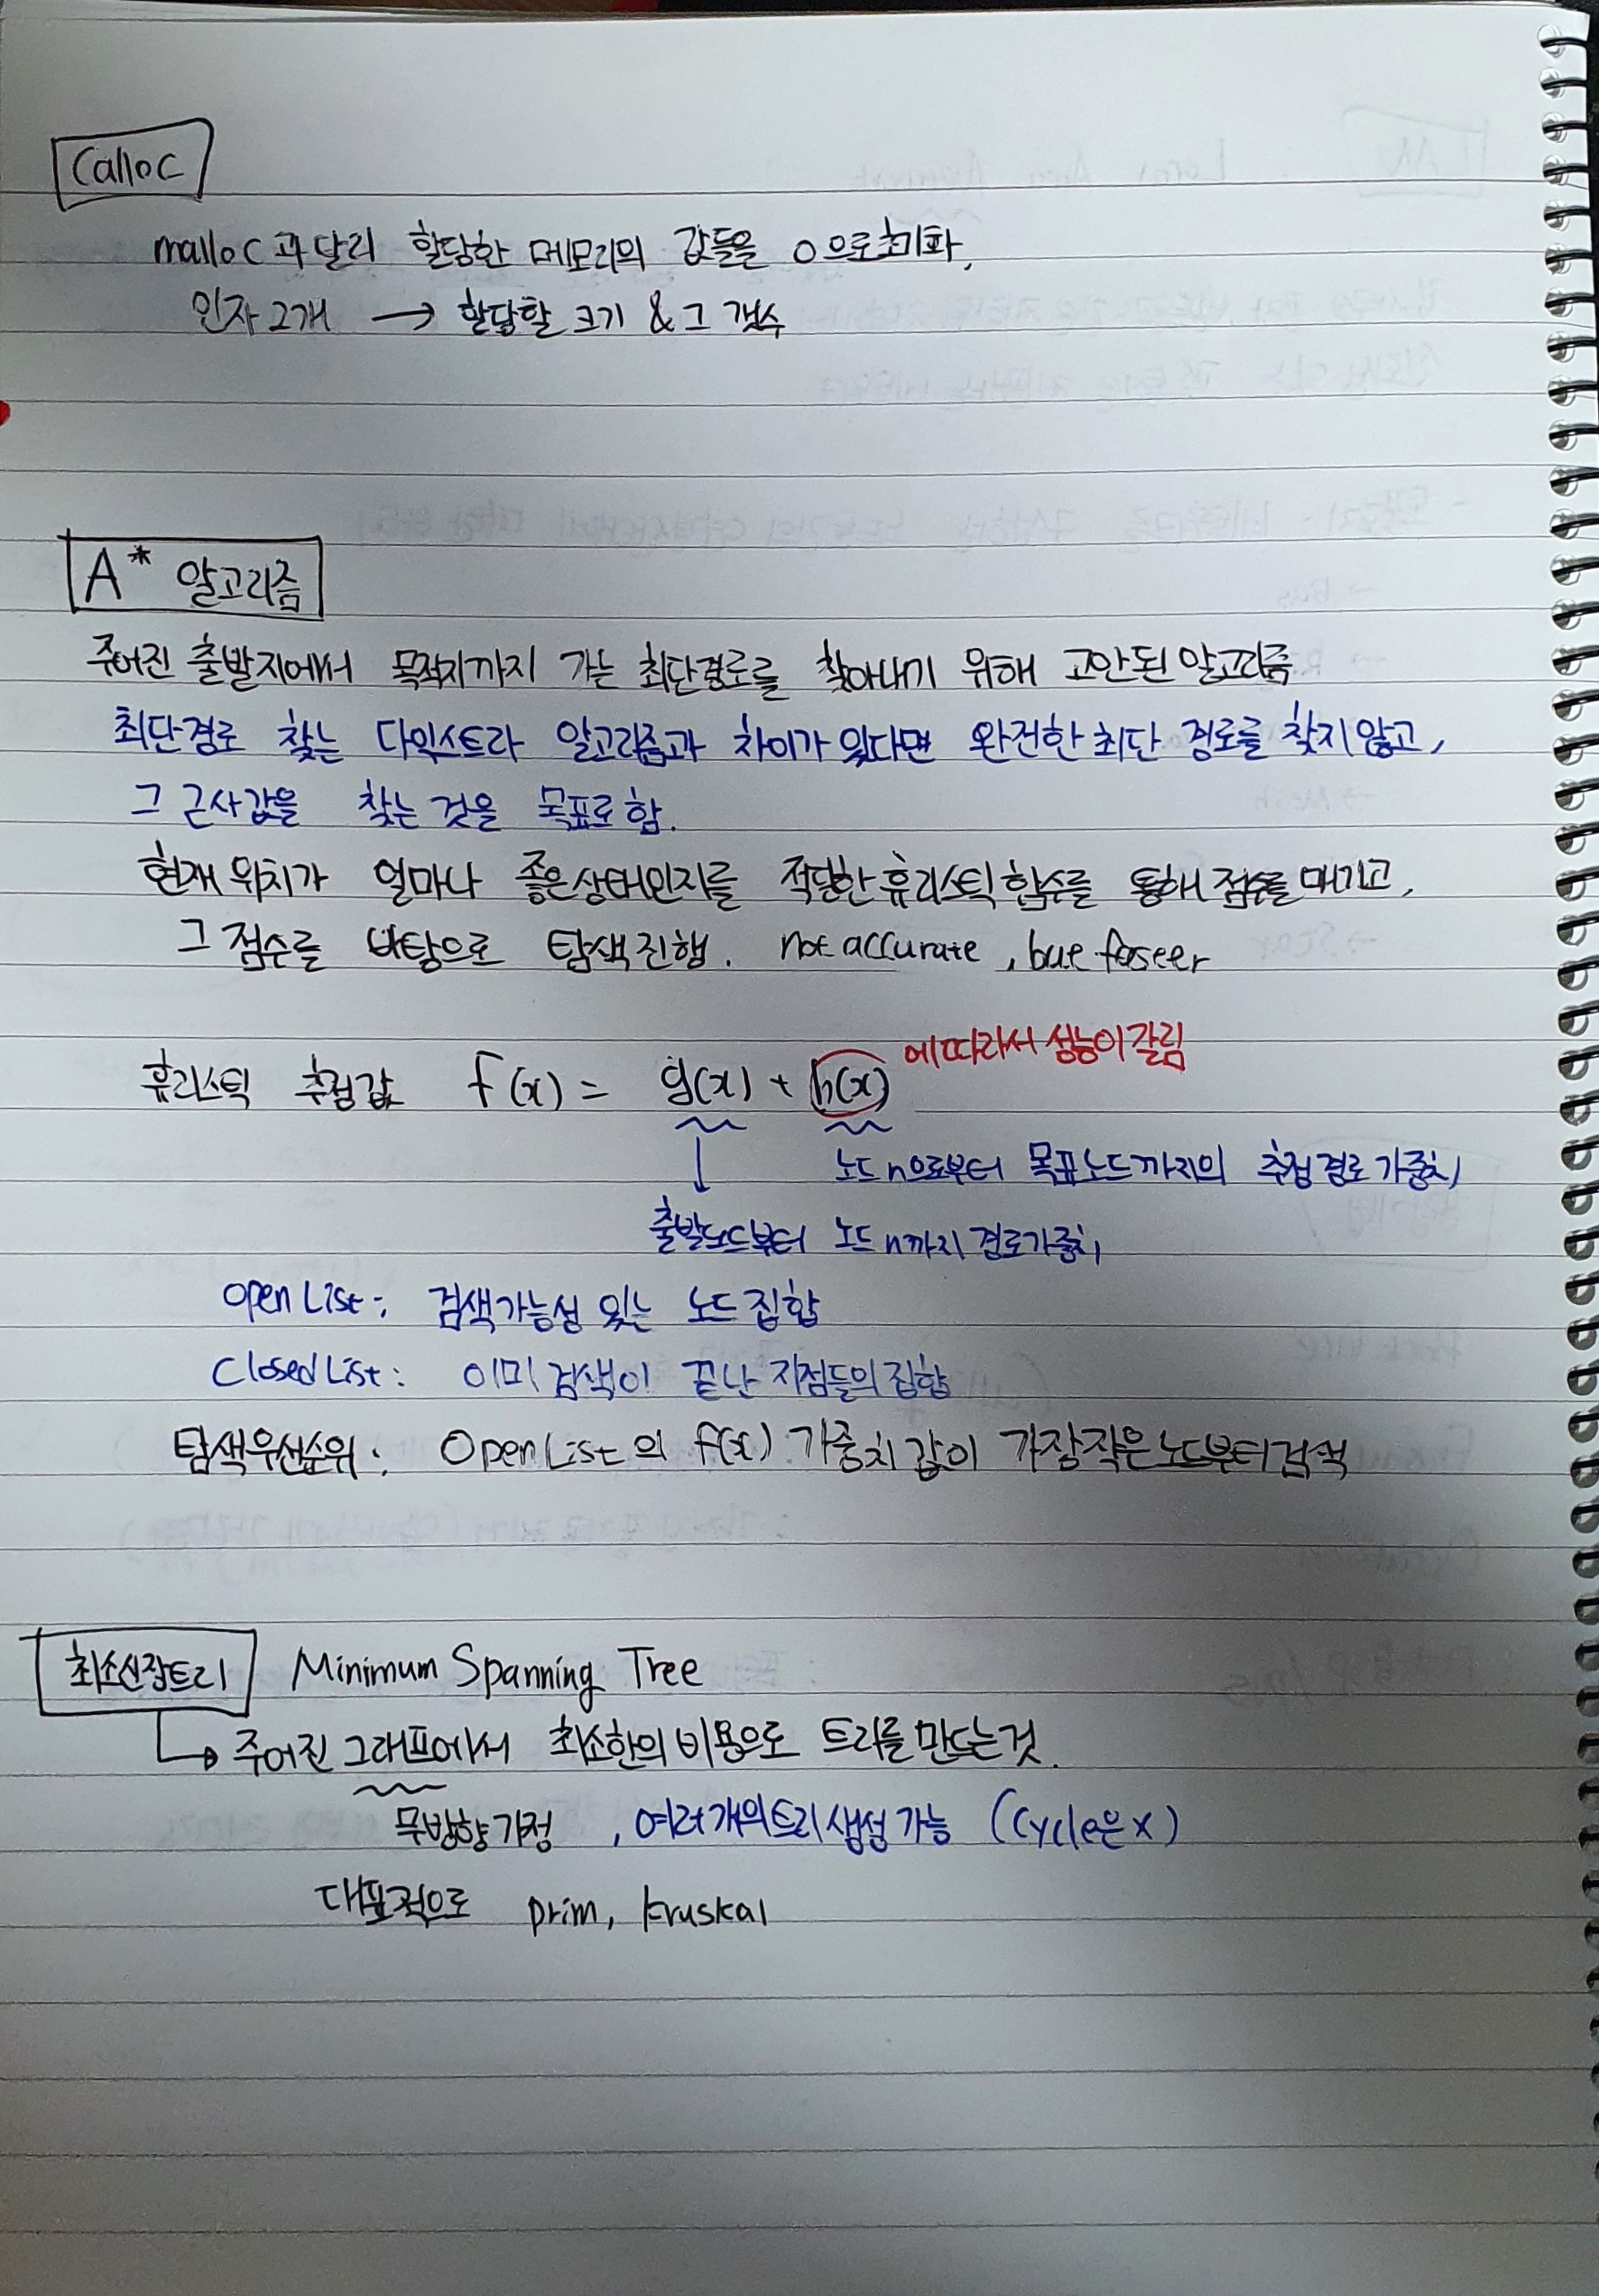 Calloc
malloc과 달리 할당한 메모리의 값들을 0으로 초기화,
인자 2개 → 할당할 크기 & 그 갯수
A* 알고리즘
주어진 출발지에서 목적지까지 가는 최단경로를 찾아내기 위해 고안된 알고리즘
최단경로 찾는 다익스트라 알고리즘과 차이가 있다면 완전한 최단 경로를 찾지 않고,
그 근사값을 찾는 것을 목표로 함.
현재 위치가 얼마나 좋은 상태인지를 적당한 휴리스틱 함수를 통해 점수를 매기고,
그 점수를 바탕으로 탐색 진행. not accurate, but faster
에 따라서 성능이 갈림
휴리스틱 추정값 f(x) = g(x) + h(x)
노드 n으로부터 목표노드까지의 추정 경로 가중치
↓
출발노드부터 노드 n까지 경로가중치
Open List : 검색가능성 있는 노드 집합
Closed List : 이미 검색이 끝난 지점들의 집합
탐색우선순위 : Open List의 f(x) 가중치 값이 가장 작은 노드부터 검색
최소신장트리 Minimum Spanning Tree
→ 주어진 그래프에서 최소한의 비용으로 트리를 만드는 것.
무방향 가정, 여러 개의 트리 생성 가능 (Cycle은 x)
대표적으로 prim, kruskal